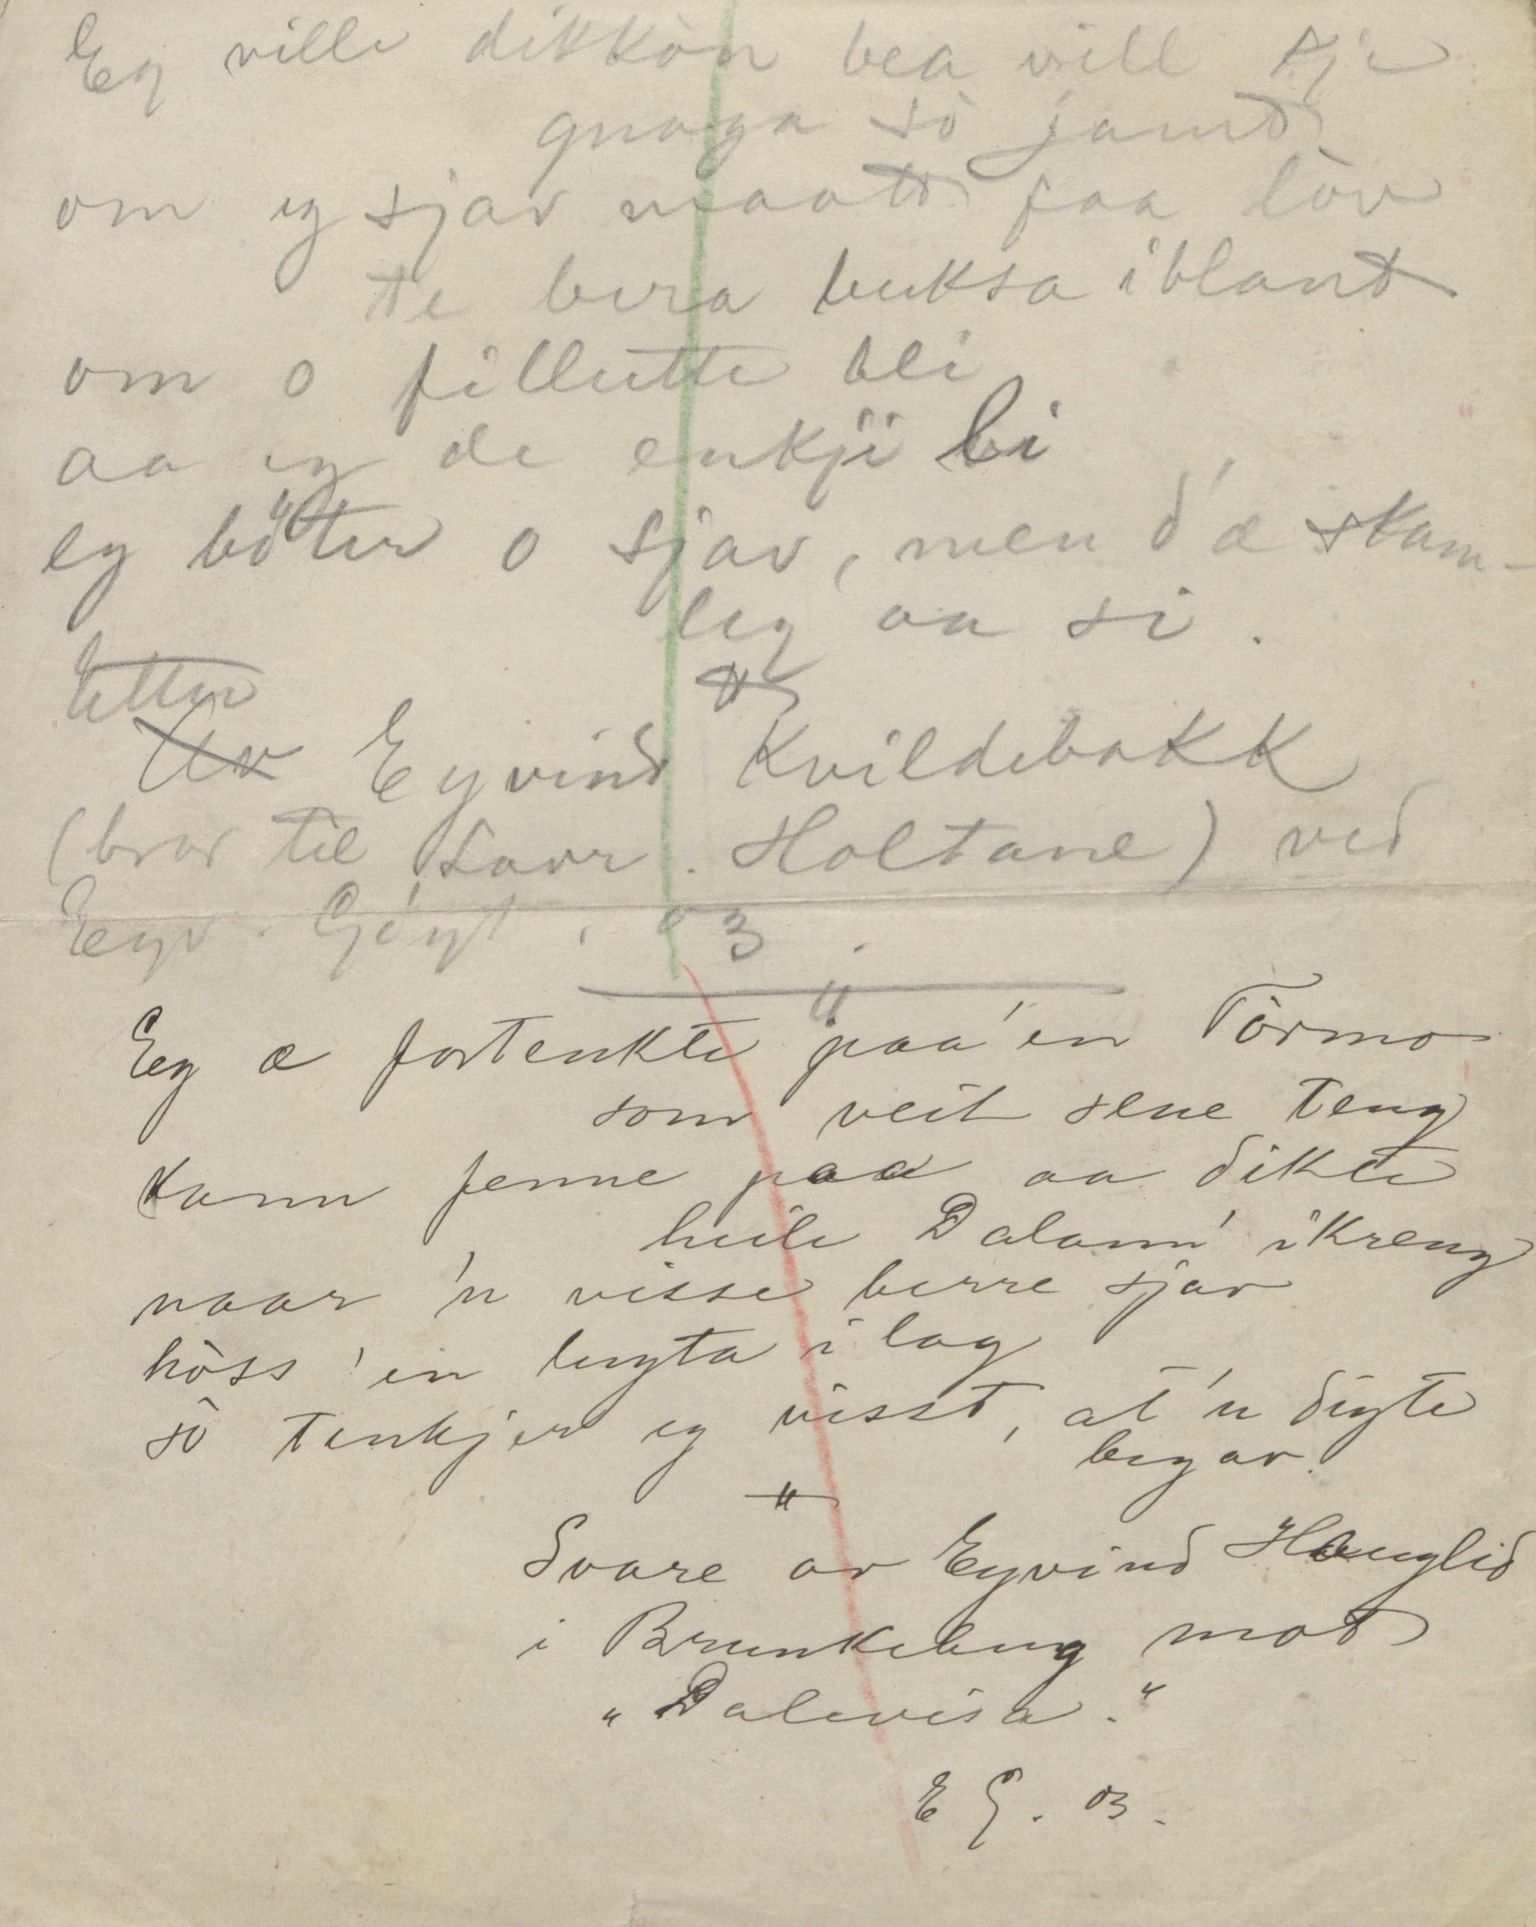 Eg ville dikkòn bea vill kje
gnaga sò jamt
om eg sjav maatte faa lòv
te bera buksa iblant
om o fillutte bli
aa eg de enkji li
eg böter o sjav, men d'æ skam-
leg aa si.
Etter
Av Eyvind Kvildebakk
(bror til Lavr. Holtane) ved
Eyv. G. 03.
Eg æ fortenkte paa'en Tòrmo
som veit slne teng
kann fenne paa aa dikte
heile Dalann' ikreng
naar 'n visse berre sjav
hòss 'en lugta i lag
sò tenkjer eg visst, at 'n digte
begav.
Svare av Eyvind Hauglid
i Brunkeberg mot
"Dalevisa."
E G. 03.